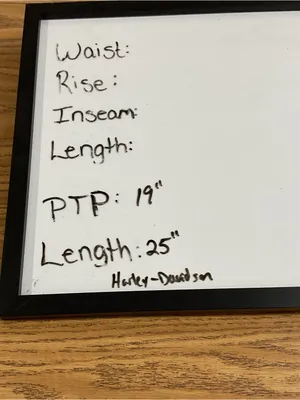 Waist:
Rise:
Inseam:
Length:
PTP: 19"
Length: 25"
Harley-Davidson